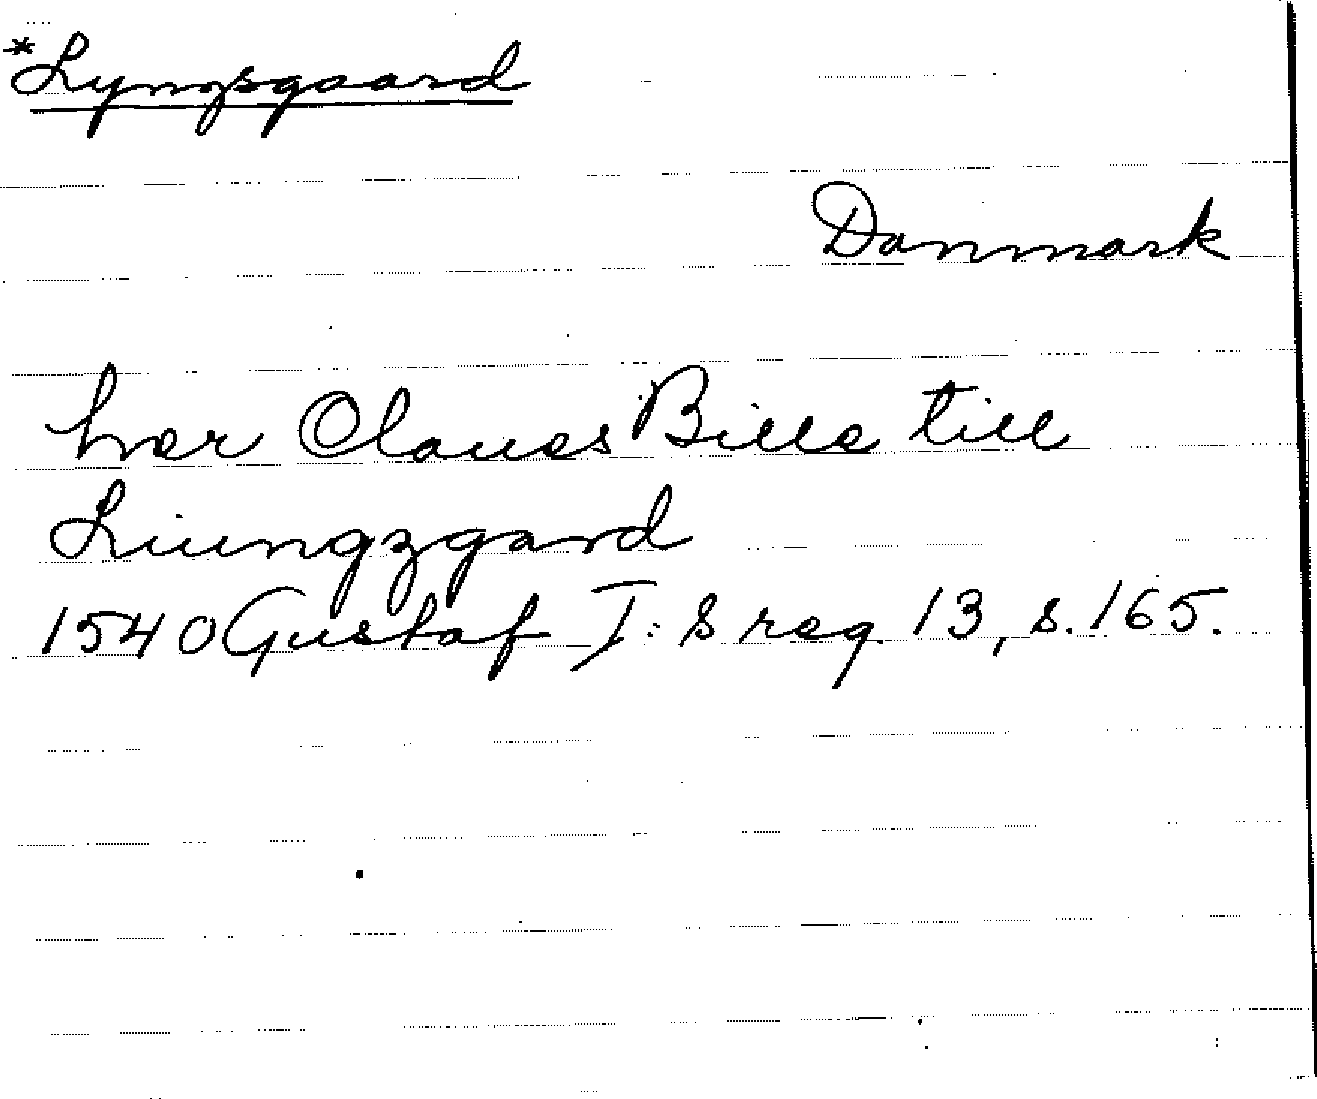 *Lyngsgaard
Danmark
her Claues Bille till
Liungzgard
1540 Gustaf I:s reg. 13, s. 165.